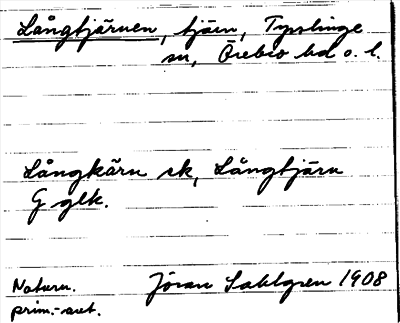 Långtjärnen, tjärn, Tysslinge
sn, Örebro hd o. l.
Långkärn sk, Långtjärn
G glk.
Naturn. Jöran Sahlgren 1908
prim.-ant.